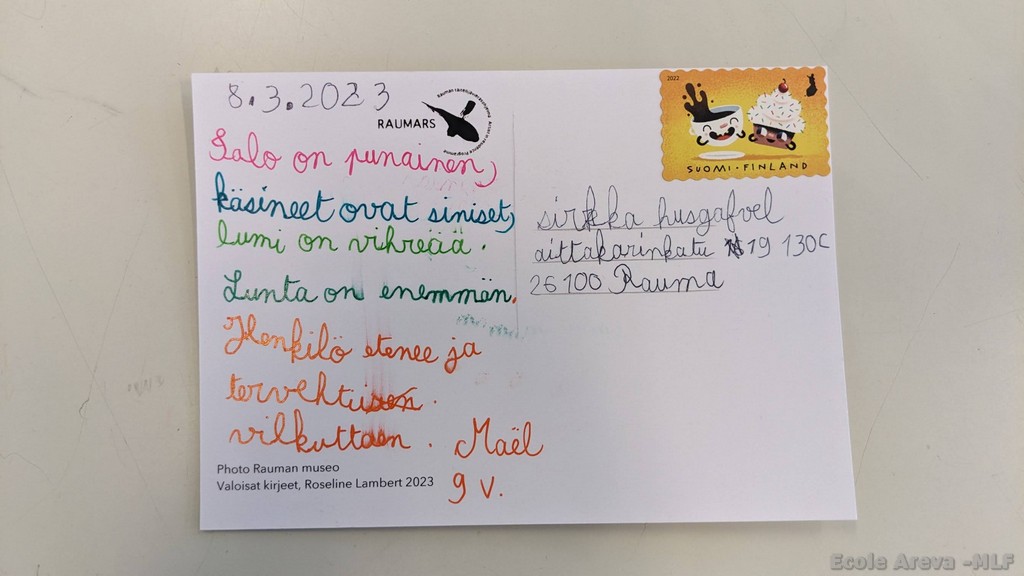 8.3.2023
RAUMARS
2022
SUOMI • FINLAND
Salo on punainen,
käsineet ovat siniset,
lumi on vihreää.
Lunta on enemmän.
Henkilö etenee ja
vilkuttaen. Maël
9 v.
sirkka husgafvel
aittakarinkatu 19 130c
26100 Rauma
Photo Rauman museo
Valoisat kirjeet, Roseline Lambert 2023
Ecole Areva -MLF